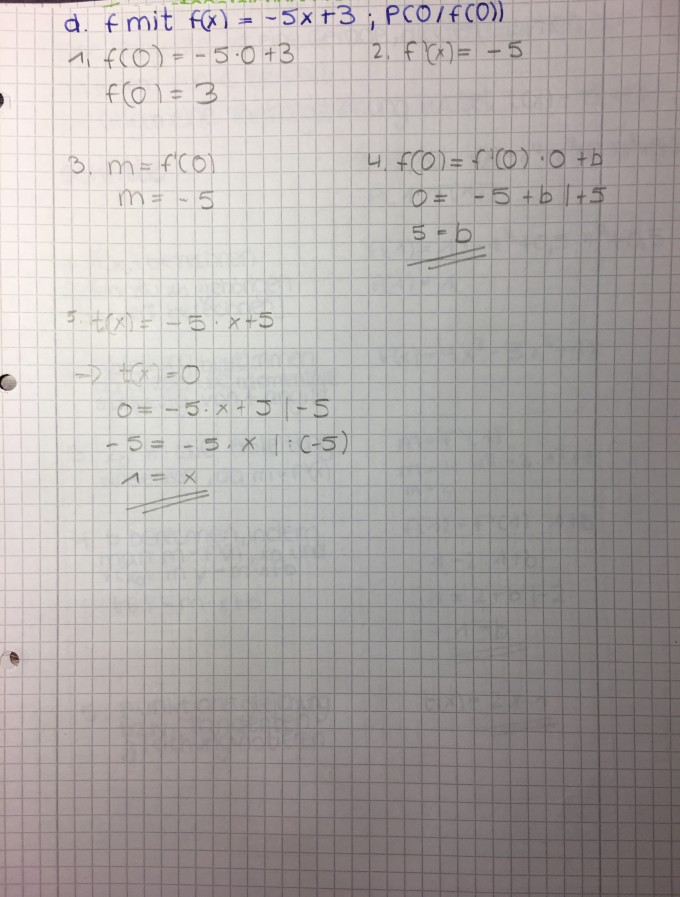 d. f mit f(x) = -5x+3 ; P(0/f(0))
1. f(0) = -5·0+3
f(0) = 3
2. f'(x) = -5
3. m = f'(0)
m = -5
4. f(0) = f'(0) · 0 + b
0 = -5 + b | +5
5 = b
5. t(x) = -5 · x+5
-> t(x) = 0
0 = -5 · x + 5 | -5
-5 = -5 · x | : (-5)
1 = x